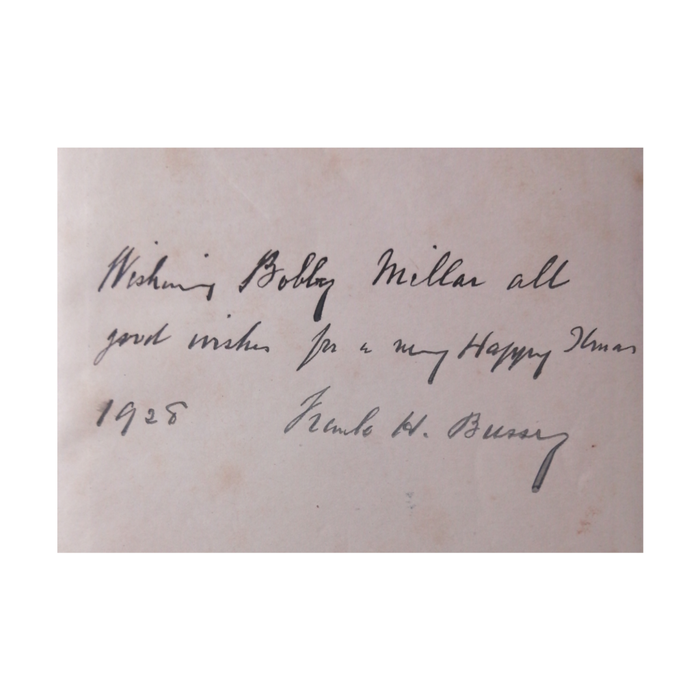 Wishing Bobby Millar all
good wishes for a very Happy Xmas
1928 Frank H. Bussey